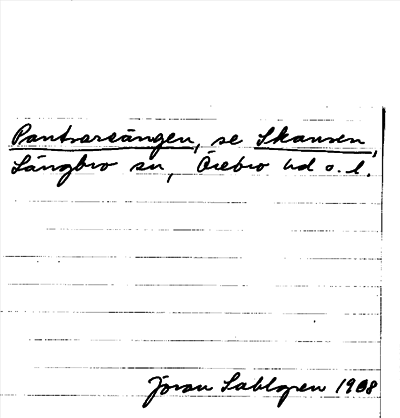 Pantvarsängen, se Skansen,
Längbro sn, Örebro hd o. l.
Jöran Sahlgren 1908